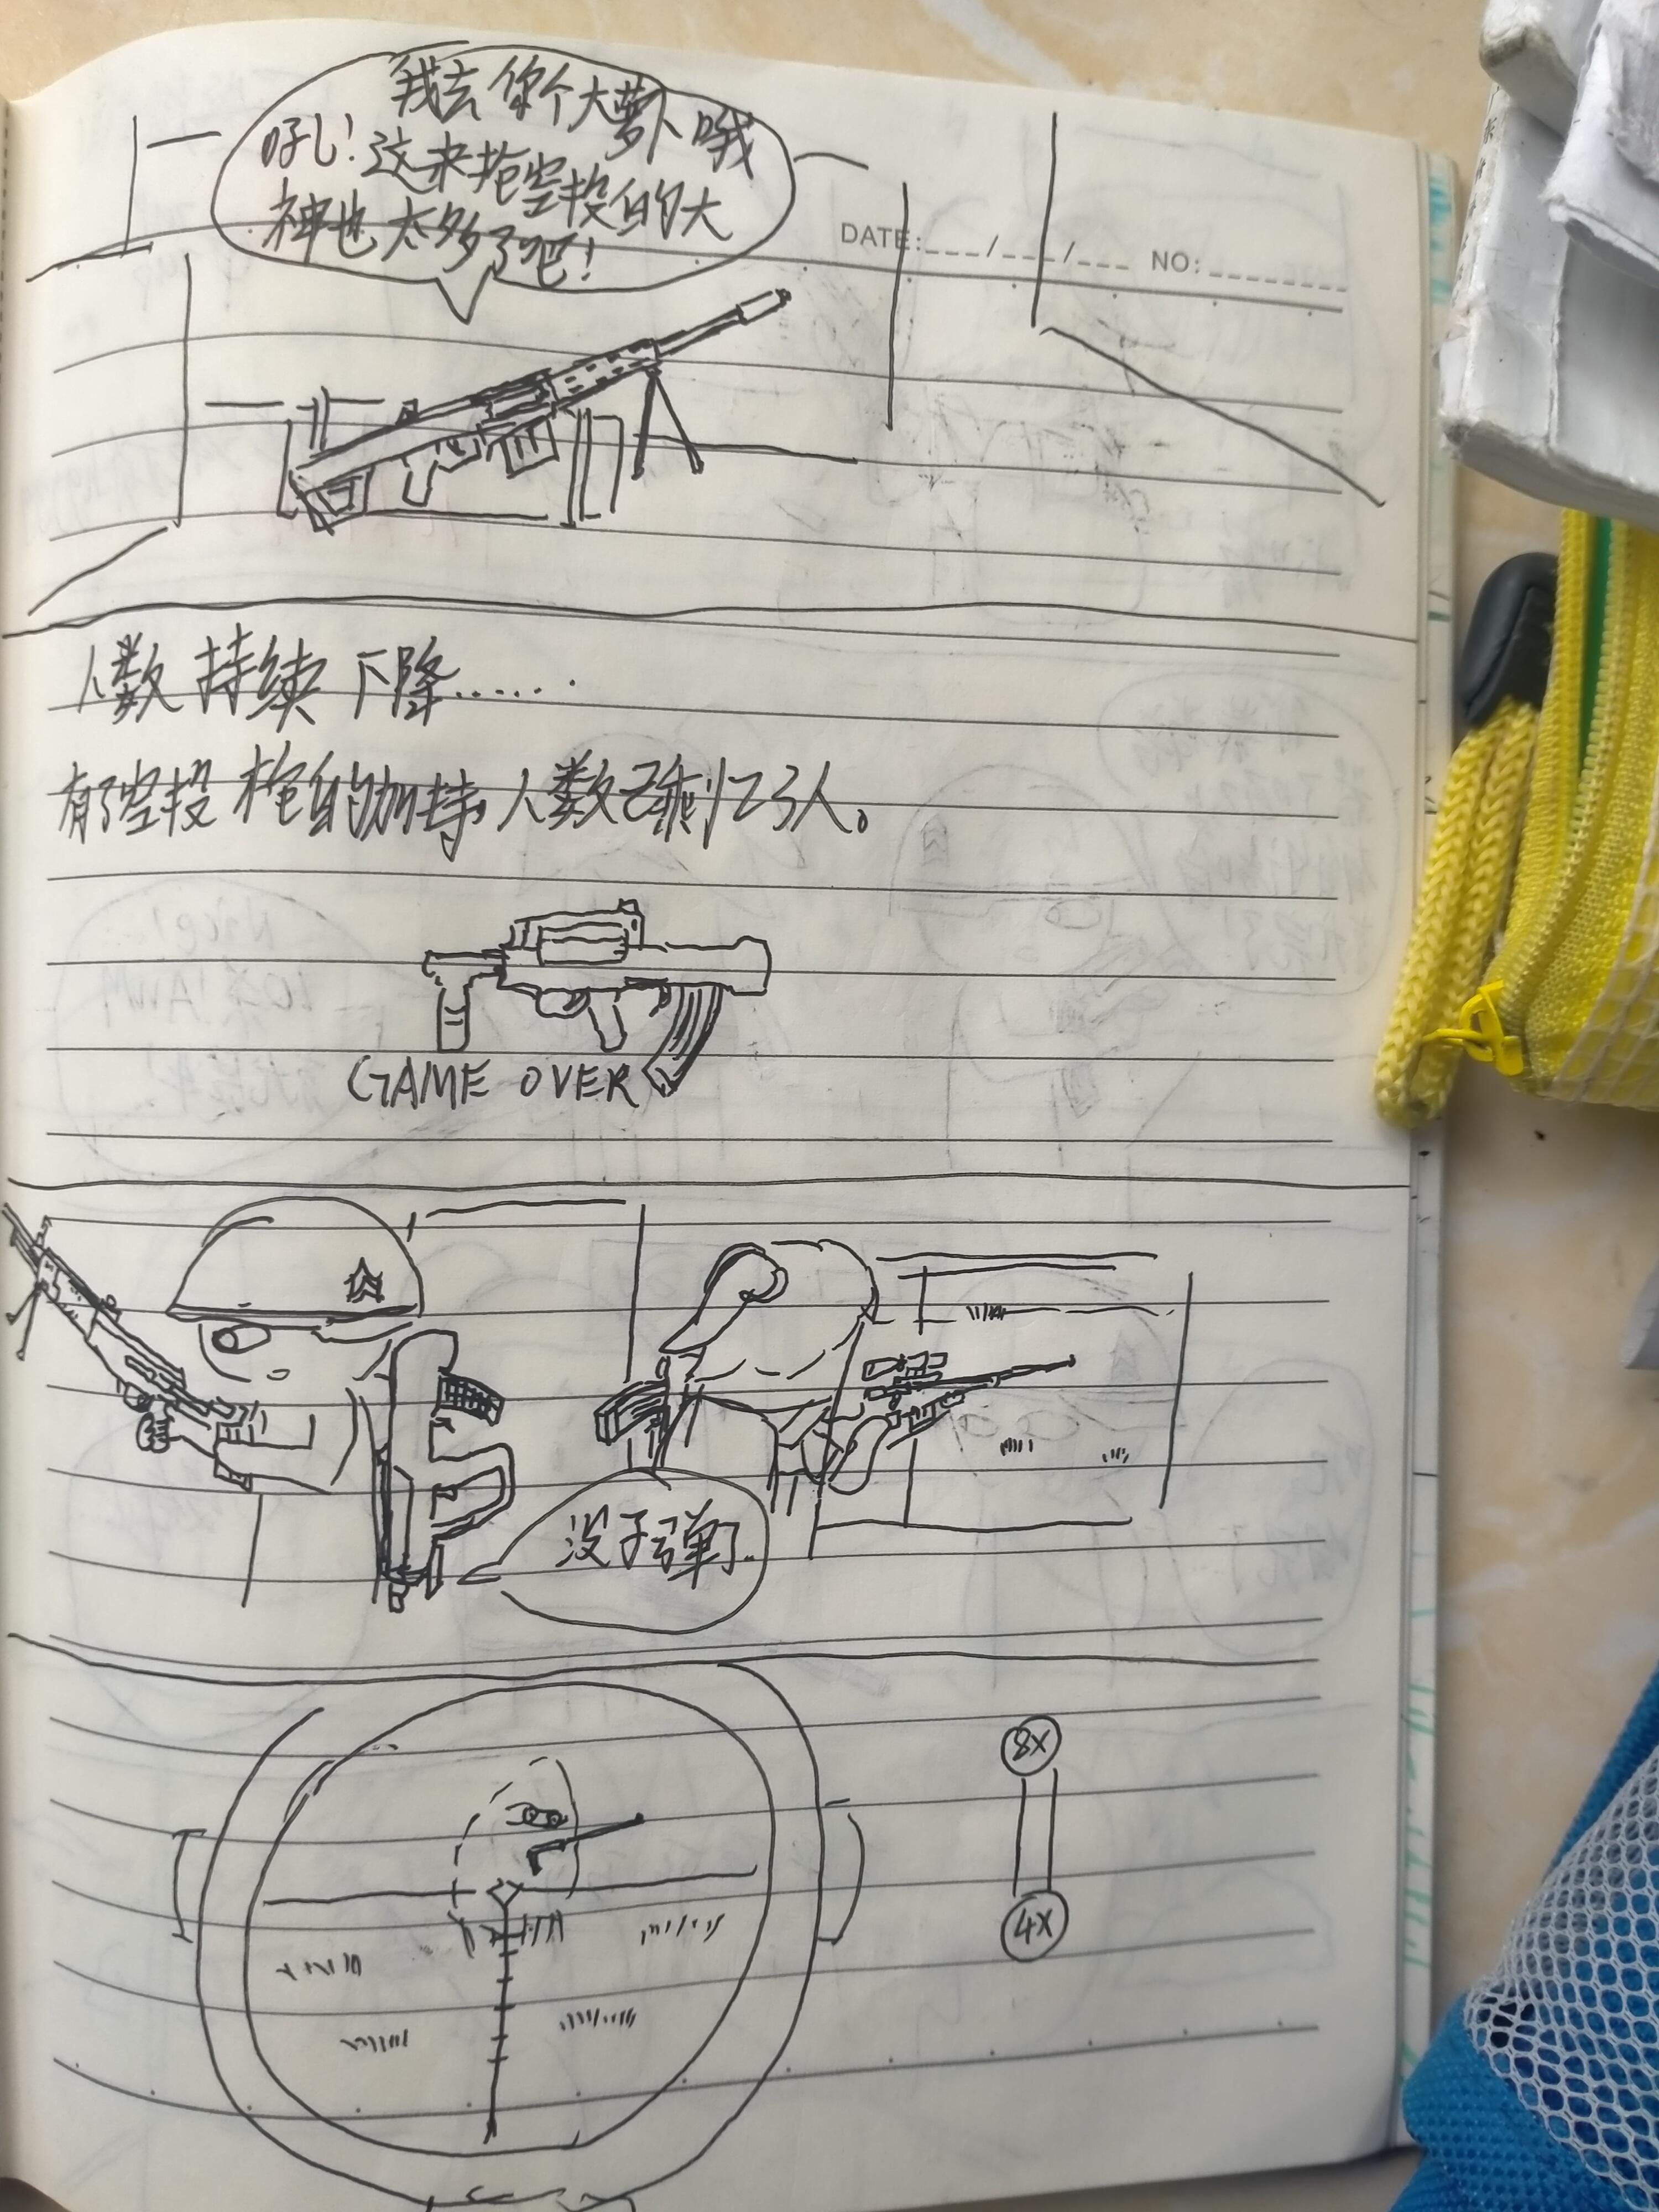 我去你个大萝卜哦
吼!这来抢空投的大
神也太多了吧!
DATE:___/___/___ NO:______
人数持续下降......
有了空投枪的加持,人数已剩23人。
GAME OVER
没子弹了..
8X
4X